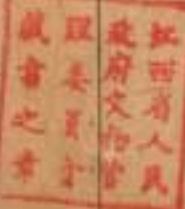 江西省人民
政府文物管
理委員會
藏書之章